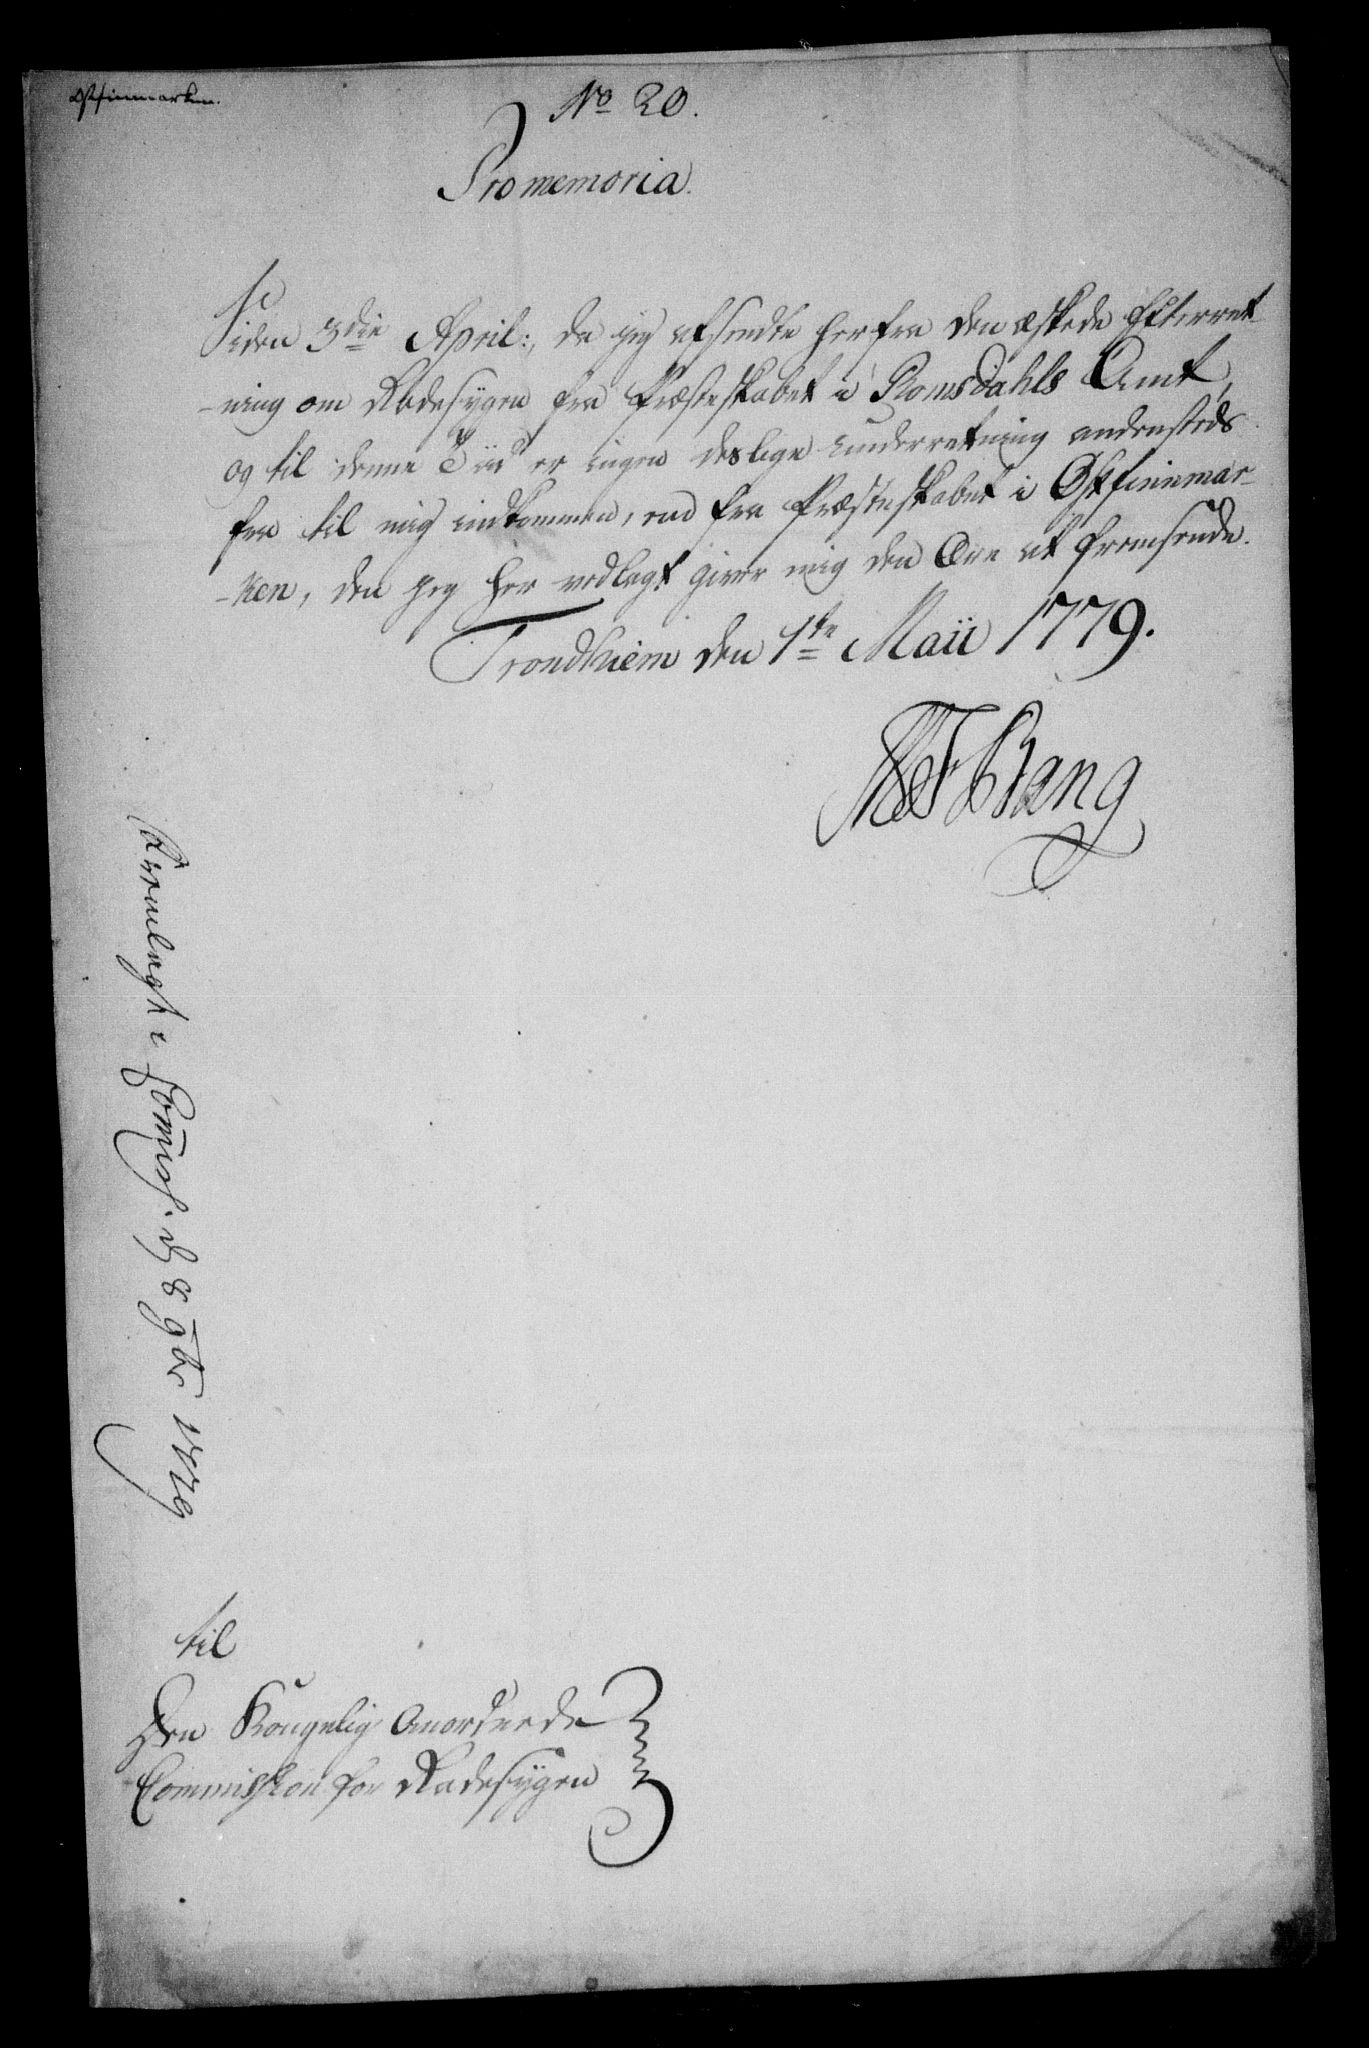 Østfinmarken.
No 20.
Promemoria.
Siden 3die April:, da jeg afsendte herfra den æskede Efterret-
-ning om Radesygen fra Præsteskabet i Romsdahls Amt,
og til denne Tiid er ingen deslige underretning andensteds
fra til mig indkommen, end fra Præsteskabet i Østfinnemar-
-ken, den jeg her vedlagt giver mig den Ære at fremsende.
Trondhiem den 1te Maii 1779.
Bang
Fremlagt i Commiss. d 8 9br 1779
til
Den Kongelig Anordnede
Commission for Radesygen